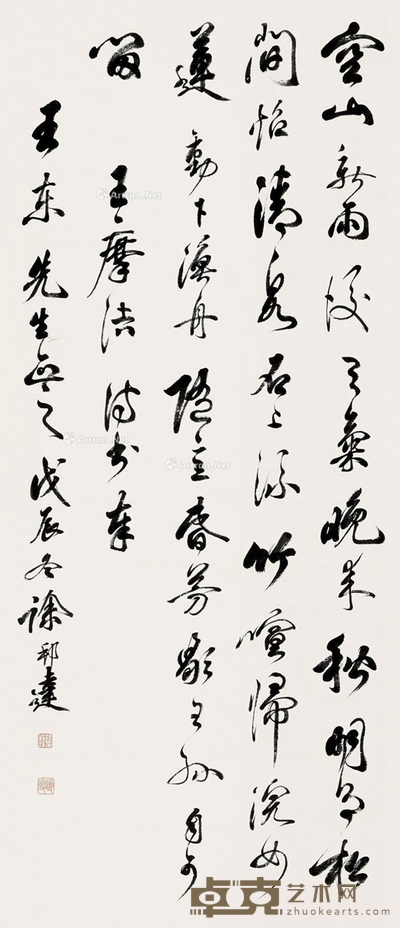 空山新雨後天氣晚來秋明月松
間照清泉石上流竹喧歸浣女
蓮動下漁舟隨意春芳歇王孫自可
留 王摩詰詩書奉
王東先生 之戊辰冬徐邦達
Artron.Net
Artron.Net
Artron.Net
Artron.Net
卓克艺术网
zhuokearts.com